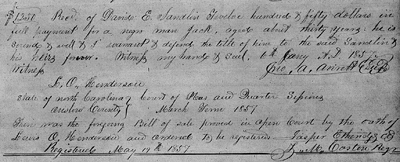 $1250. Recd. of David E. Sandlin Twelve hundred & fifty dollars in
full payment for a negro man Jack, aged about thirty years; he is
sound & well & I warrant & defend the title of him to the said Sandlin &
his heirs forever. Witness my hand & seal, 6th Jany A.D. 1857.
Witness Geo. M.
L. O. Henderson
State of North Carolina Court of Pleas and Quarter Sessions
Onslow County March Term 1857
Then was the foregoing Bill of sale proved in open Court by the oath of
O. Henderson and ordered to be registered. Jasper Etheridge
Registered May 19th 1857